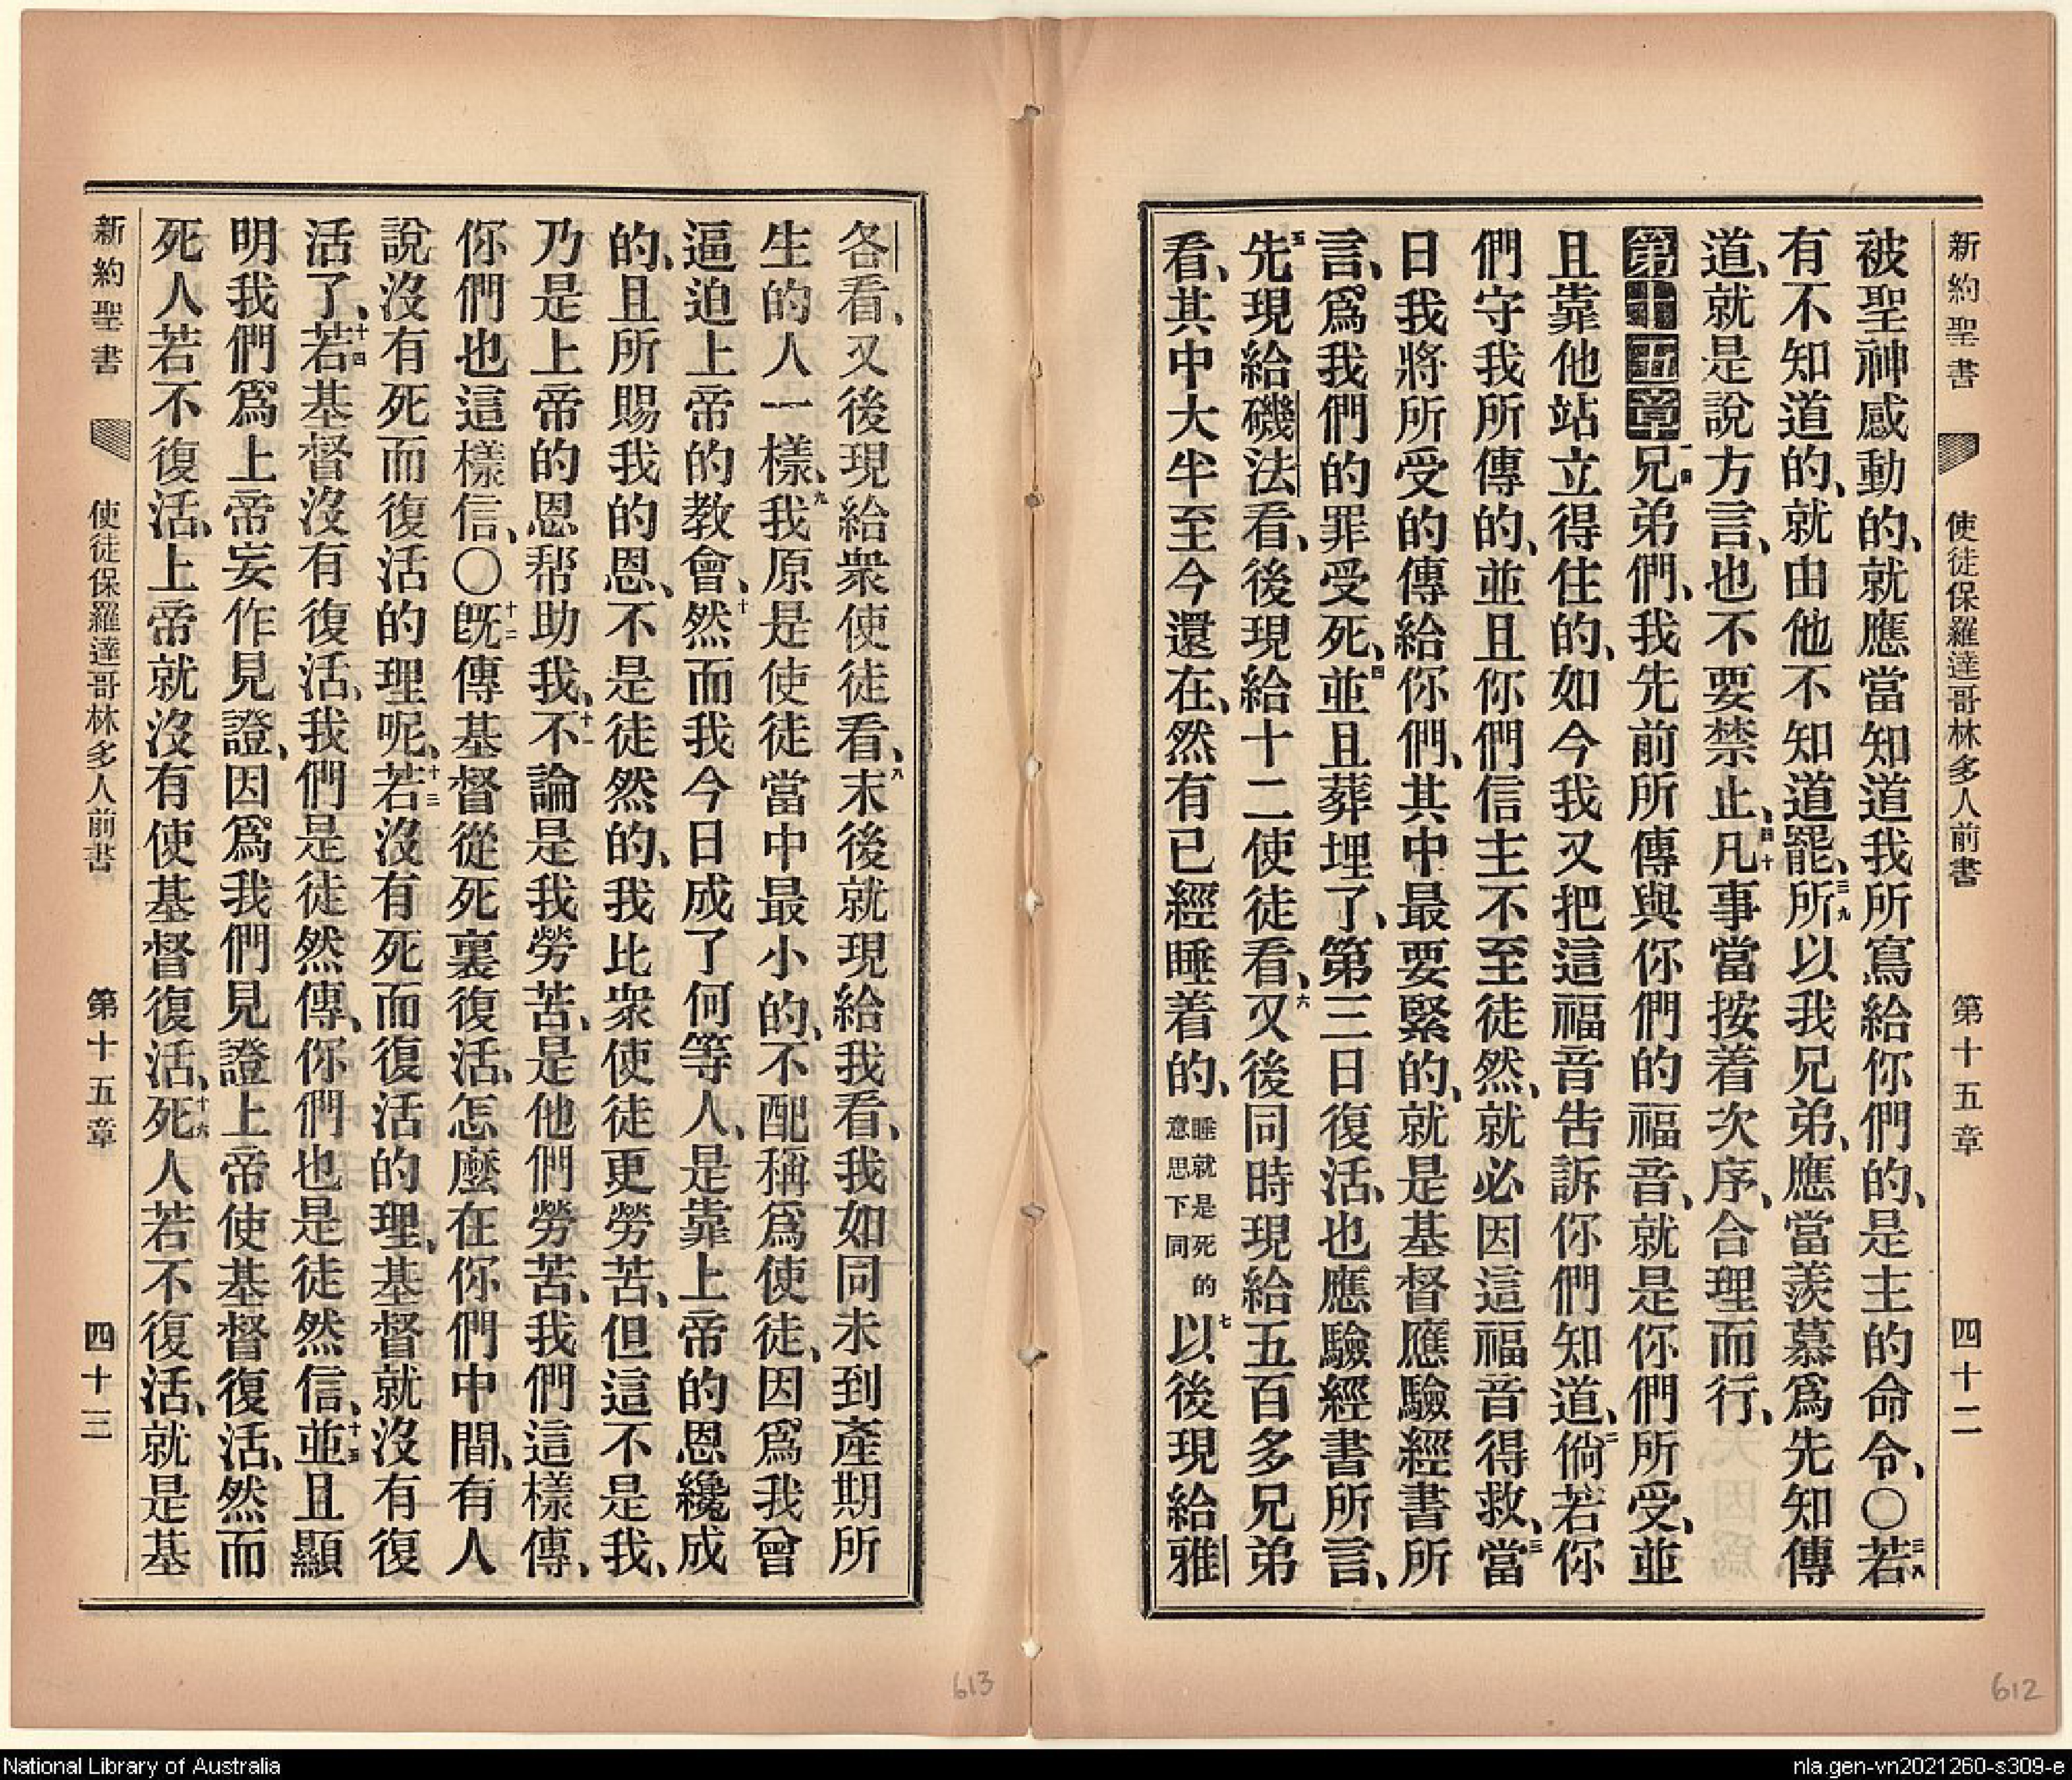 新約聖書 使徒保羅達哥林多人前書 第十五章 四十二
被聖神感動的、就應當知道我所寫給你們的、是主的命令、○三八若
有不知道的、就由他不知道罷、三九所以我兄弟、應當羨慕爲先知傳
道、就是說方言、也不要禁止、四十凡事當按着次序、合理而行、
第十五章一兄弟們、我先前所傳與你們的福音、就是你們所受、並
且靠他站立得住的、如今我又把這福音告訴你們知道、二倘若你
們守我所傳的、並且你們信主不至徒然、就必因這福音得救、三當
日我將所受的傳給你們、其中最要緊的、就是基督應驗經書所
言、爲我們的罪受死、四並且葬埋了、第三日復活、也應驗經書所言、
五先現給磯法看、後現給十二使徒看、六又後同時現給五百多兄弟
看、其中大半至今還在、然有已經睡着的、睡就是死的意思下同七以後現給雅
各看、又後現給衆使徒看、八末後就現給我看、我如同未到產期所
生的人一樣、九我原是使徒當中最小的、不配稱爲使徒、因爲我曾
逼迫上帝的教會、十然而我今日成了何等人、是靠上帝的恩纔成
的、且所賜我的恩、不是徒然的、我比衆使徒更勞苦、但這不是我、
乃是上帝的恩帮助我、十一不論是我勞苦、是他們勞苦、我們這樣傳、
你們也這樣信、○十二旣傳基督從死裏復活、怎麼在你們中間、有人
說沒有死而復活的理呢、十三若沒有死而復活的理、基督就沒有復
活了、十四若基督沒有復活、我們是徒然傳、你們也是徒然信、十五並且顯
明我們爲上帝妄作見證、因爲我們見證上帝使基督復活、然而
死人若不復活、上帝就沒有使基督復活、十六死人若不復活、就是基
新約聖書 使徒保羅達哥林多人前書 第十五章 四十三
613
612
National Library of Australia
nla.gen-vn2021260-s309-e